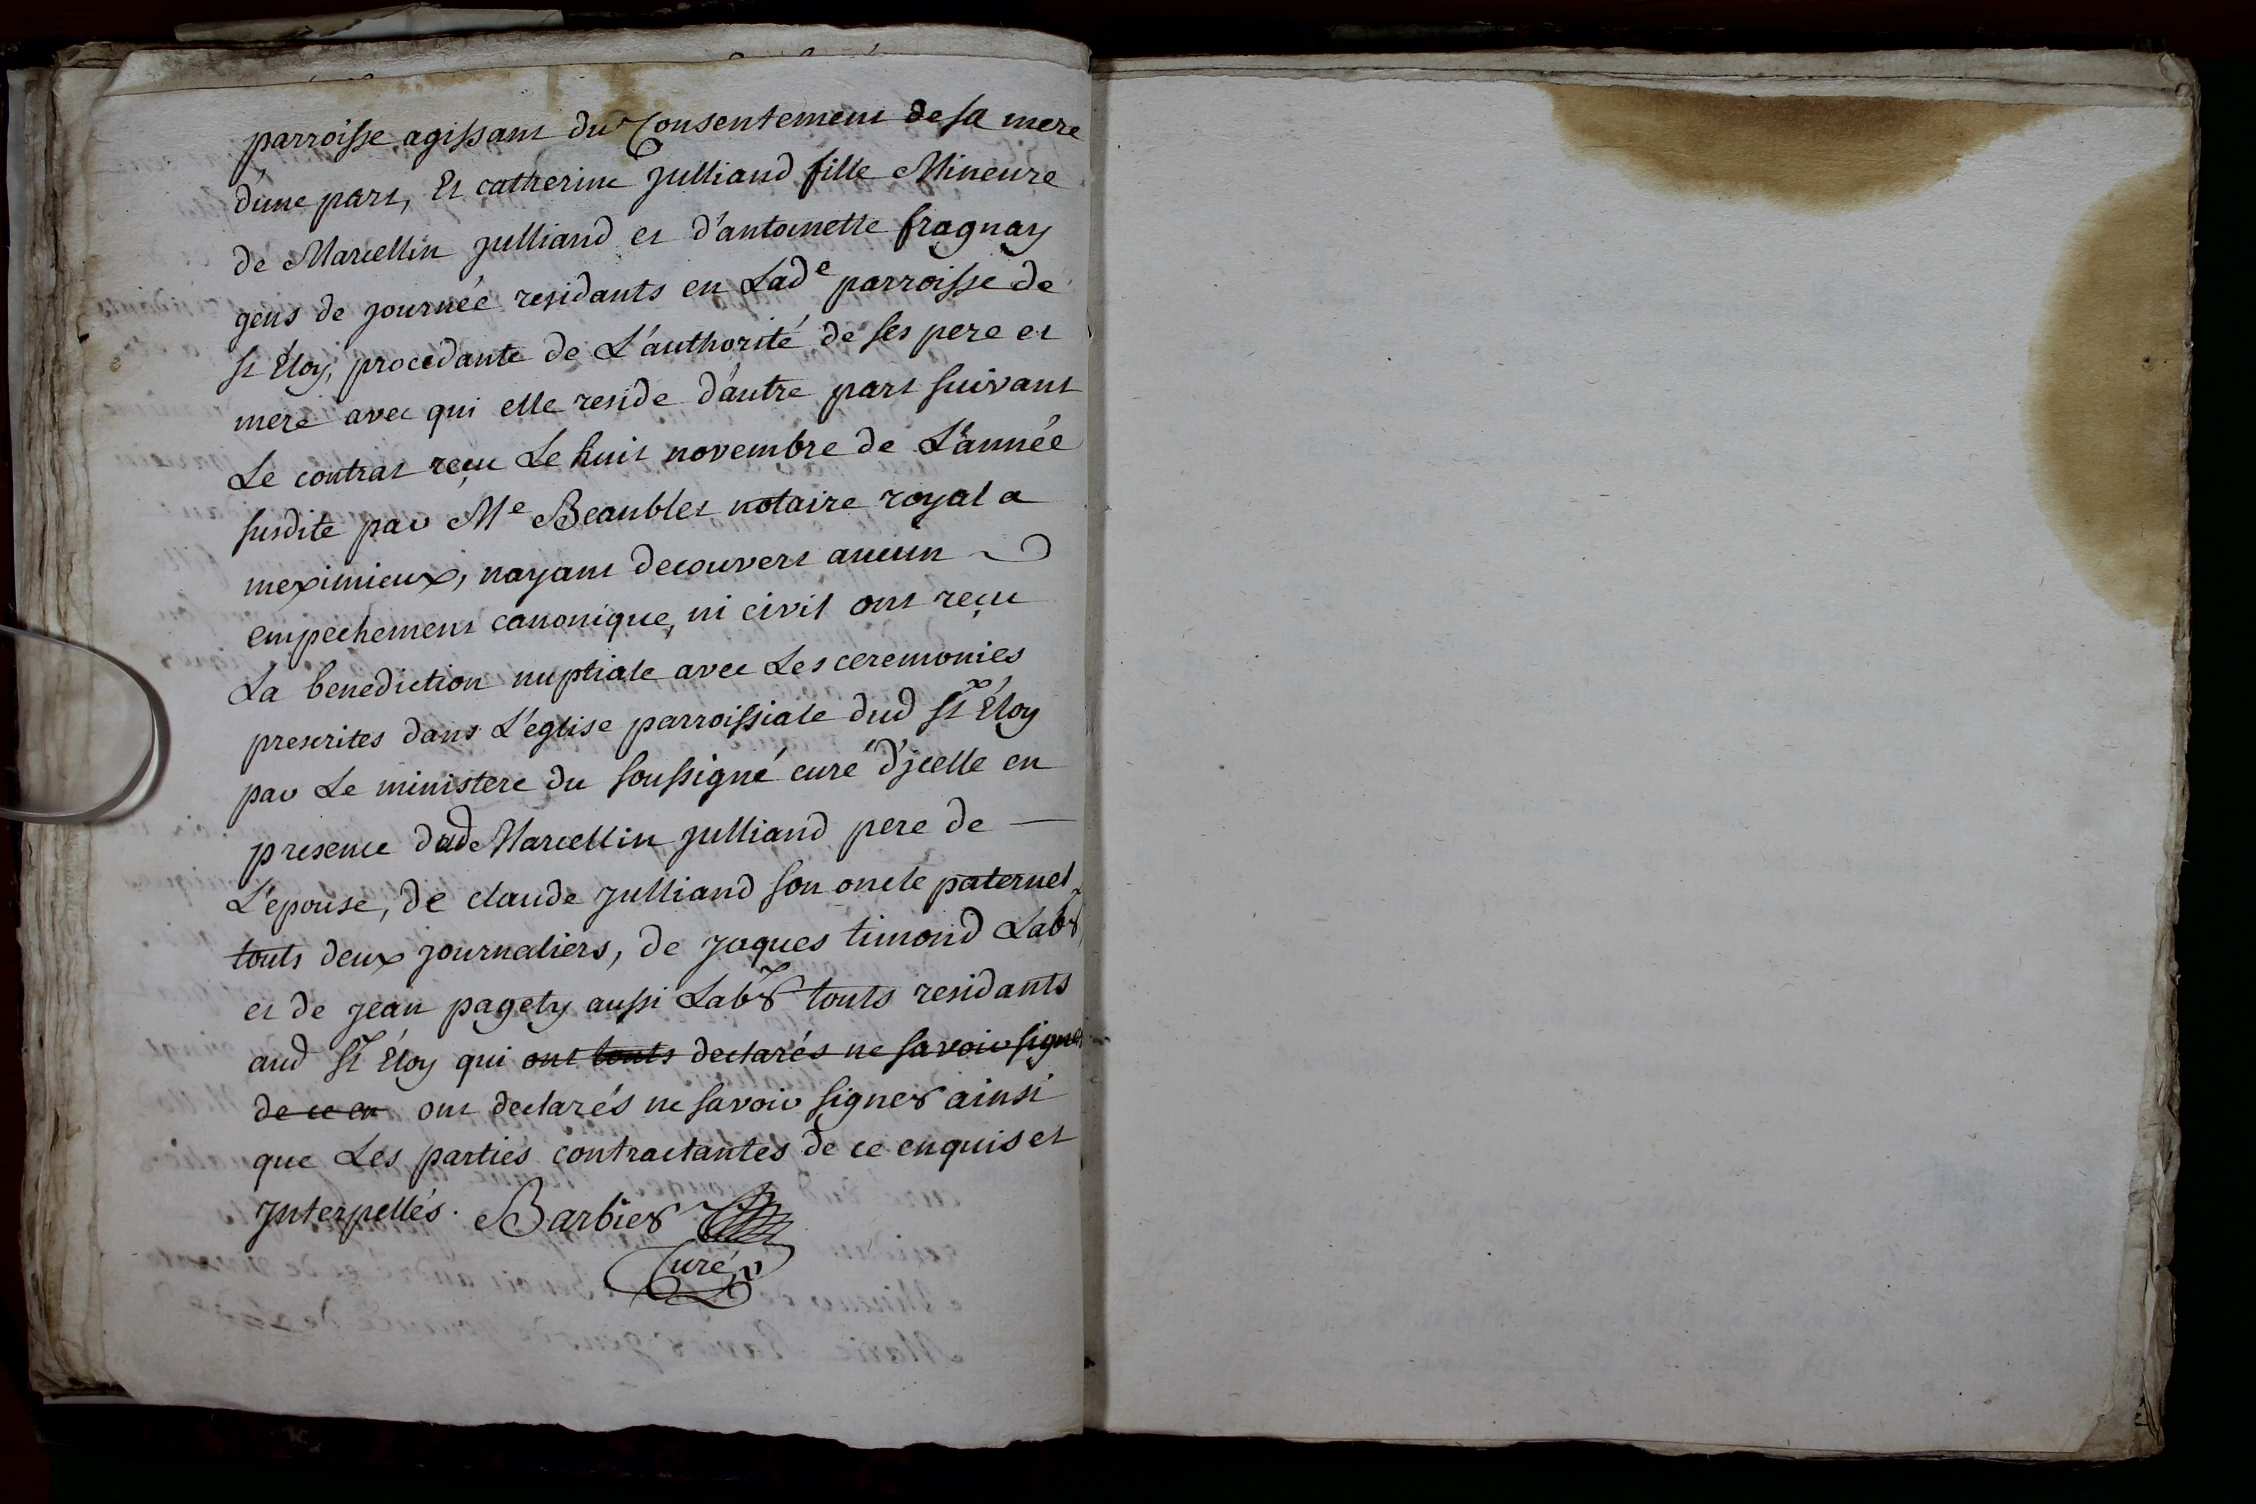 parroisse agissant du Consentement de sa mere
d'une part, Et catherine Julliand fille Mineure
de Marcellin Julliand et d'antoinette fragnay
gens de journée residants en Lad.e parroisse de
St Éloy, procedante de L'authorité de ses pere et
mere avec qui elle reside d'autre part suivant
Le contrat reçu Le huit novembre de L'année
susdite par Me Beaublet notaire royal a
meximieux, nayant decouvert aucun
empechement canonique, ni civil ont reçu
La benediction nuptiale avec Les ceremonies
prescrites dans L'eglise parroissiale dud St Éloy
par Le ministere du soussigné curé d'jcelle en
presence dud Marcellin Julliand pere de
L'épouse, de claude Julliand son oncle paternel
touts deux journaliers, de jaques timond Labr
et de jean pagety aussi Labr touts residants
aud St Éloy qui ont touts declarés ne savoir signer
de ce en ont declarés ne savoir signer ainsi
que Les parties contractantes de ce enquis et
Interpellés. Barbier
Curé